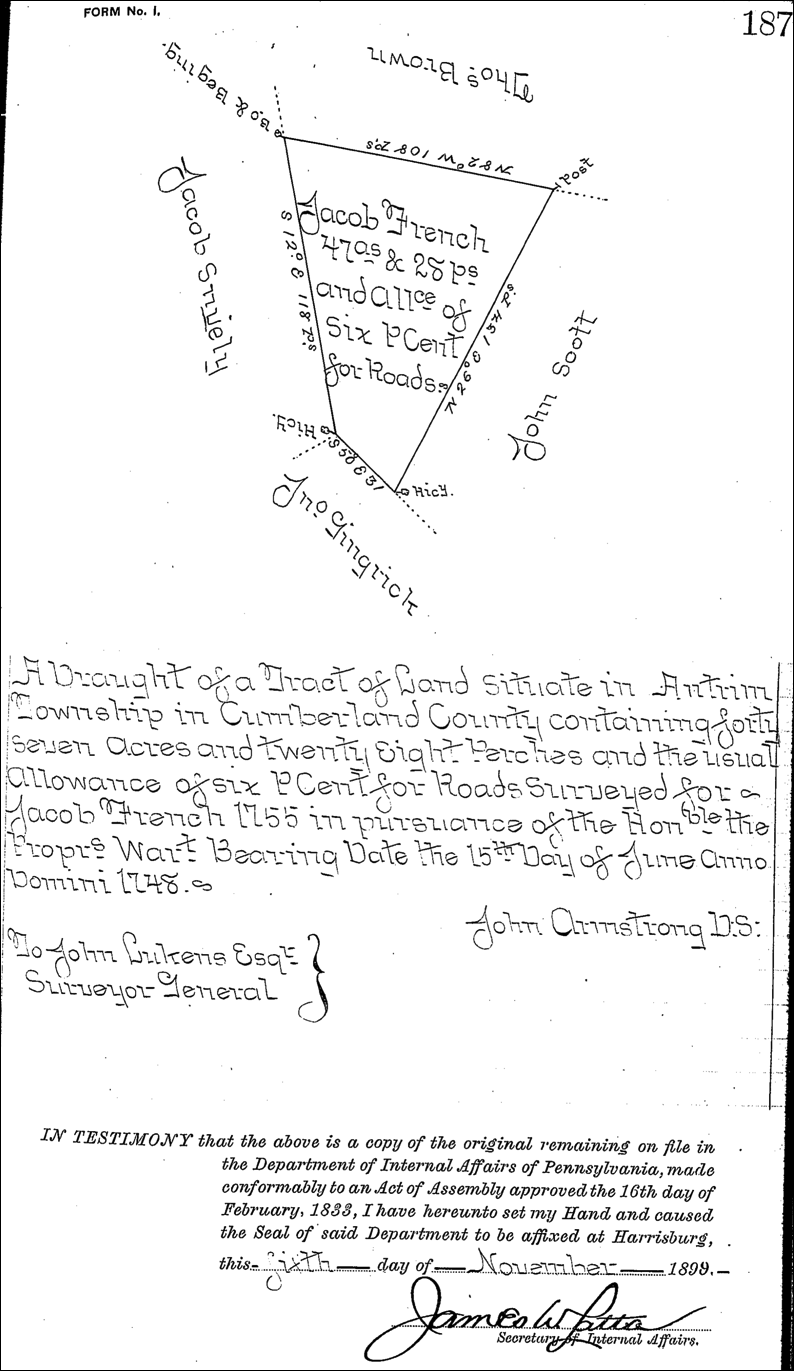 FORM No. 1.
187
Thos Brown
B.O. & Beging.
N 82° W 108 Ps
Post
Jacob Snively
S 12° E 118 Ps
Jacob French
47as & 28 ps
and Allce of
Six P Cent
for Roads.
N 26° E 134 Ps
John Scott
Hicy.
S 58 E 31
Hicy.
Jno Gingrich
A Draught of a Tract of Land Situate in Antrim
Township in Cumberland County containing forty
Seven Acres and twenty Eight Perches and the usual
Allowance of six P Cent for Roads Surveyed for
Jacob French 1755 in pursuance of the Honble the
Proprs Wart Bearing Date the 15th Day of June Anno
Domini 1748.
John Armstrong D.S:
To John Lukens Esqr
Surveyor General
IN TESTIMONY that the above is a copy of the original remaining on file in
the Department of Internal Affairs of Pennsylvania, made
conformably to an Act of Assembly approved the 16th day of
February, 1833, I have hereunto set my Hand and caused
the Seal of said Department to be affixed at Harrisburg,
this Sixth day of November 1899.
James W Latta
Secretary of Internal Affairs.